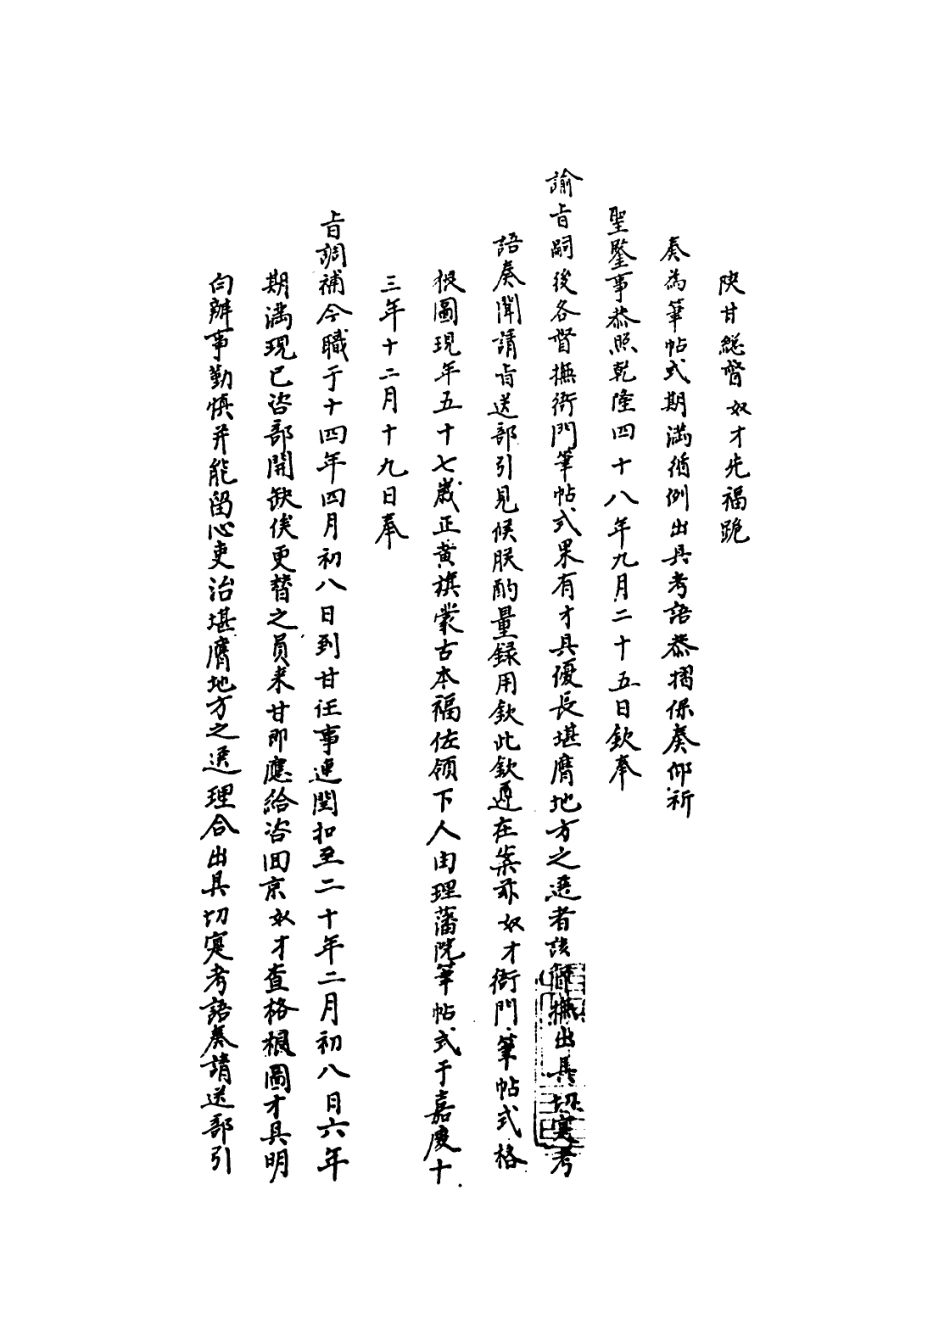 陝甘總督奴才先福跪
奏為筆帖式期滿循例出具考語恭摺保奏仰祈
聖鑒事恭照乾隆四十八年九月二十五日欽奉
諭旨嗣後各督撫衙門筆帖式果有才具優長堪膺地方之選者該督撫出具切寔考
語奏聞請旨送部引見候朕酌量錄用欽此欽遵在案茲奴才衙門筆帖式格
根圖現年五十七歲正黃旗蒙古本福佐領下人由理藩院筆帖式于嘉慶十
三年十二月十九日奉
旨調補今職于十四年四月初八日到甘任事連閏扣至二十年二月初八日六年
期滿現已咨部開缺俟更替之員來甘即應給咨回京奴才查格根圖才具明
白辦事勤慎并能留心吏治堪膺地方之選理合出具切寔考語奏請送部引